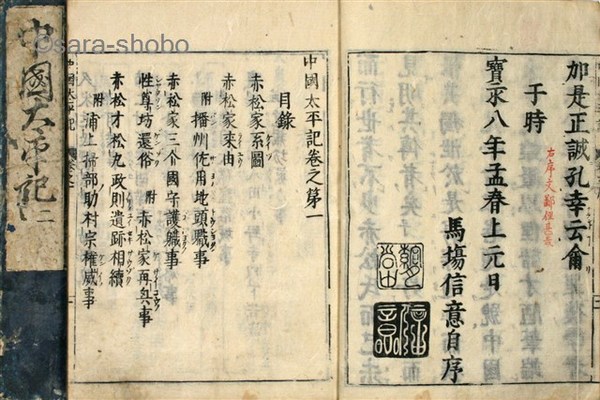 ©sara-shobo
加是正誠孔幸云爾
于時
寶永八年孟春上元日
馬場信意自序
中國太平記卷之第一
目錄
赤松家系圖
赤松家來由
附 播州佐用地頭職事
赤松家三个國守護職事
性尊坊還俗 附 赤松家再興事
赤松才松丸政則遺跡相續
附 浦上掃部助村宗權威事
中國太平記
中國太平記 二